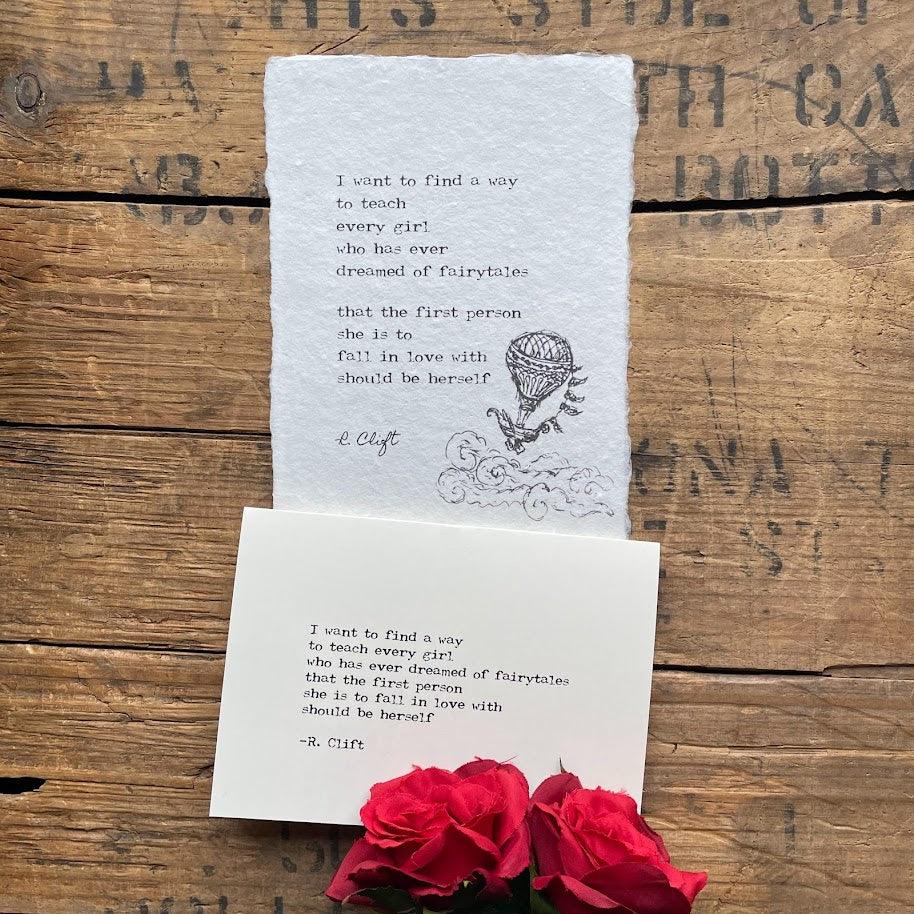 I want to find a way
to teach
every girl
who has ever
dreamed of fairytales
that the first person
she is to
fall in love with
should be herself
R. Clift
I want to find a way
to teach every girl
who has ever dreamed of fairytales
that the first person
she is to fall in love with
should be herself
-R. Clift